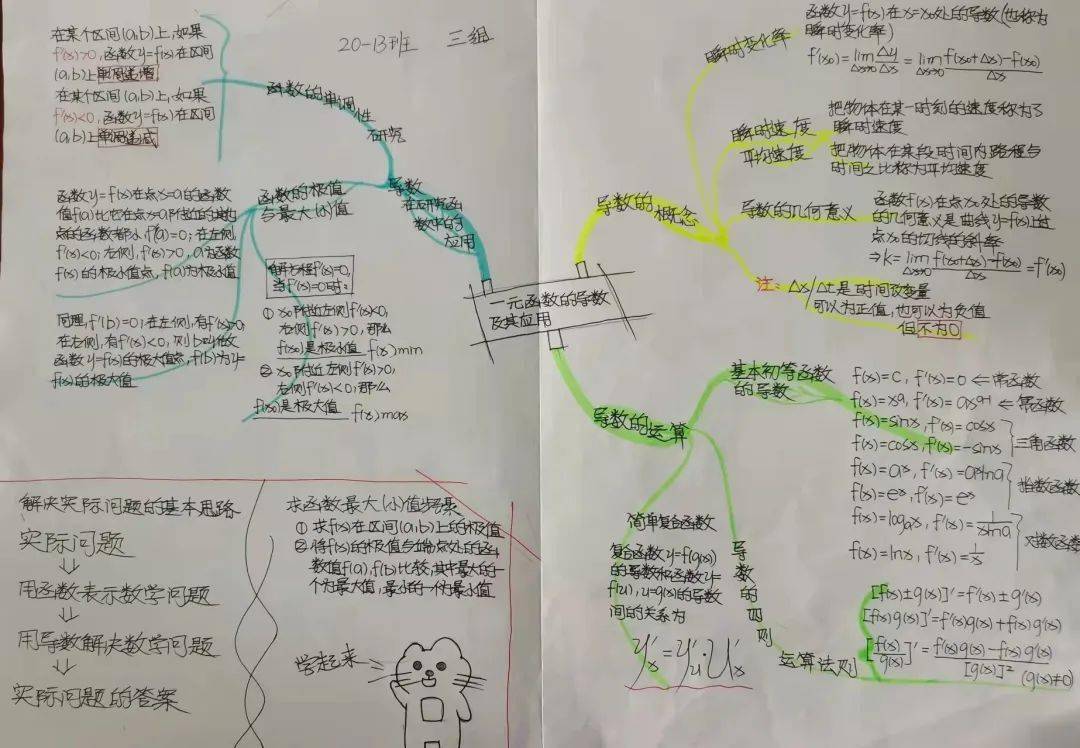 20-13班 三组
一元函数的导数
及其应用
导数的概念
瞬时变化率
函数y=f(x)在x=x₀处的导数(也称为
瞬时变化率)
f'(x₀)=lim Δx→0 Δy/Δx = lim Δx→0 f(x₀+Δx)-f(x₀)/Δx
瞬时速度
平均速度
把物体在某一时刻的速度称为了
瞬时速度
把物体在某段时间内路程与
时间之比称为平均速度
导数的几何意义
函数f(x)在点x₀处的导数
的几何意义是曲线y=f(x)上
点x₀的切线的斜率
⇒k=lim Δx→0 f(x₀+Δx)-f(x₀)/Δx=f'(x₀)
注: Δx/Δt是时间改变量
可以为正值,也可以为负值
但不为0
导数的运算
基本初等函数
的导数
f(x)=C, f'(x)=0 ⇐ 常函数
f(x)=xᵅ, f'(x)=αxᵅ⁻¹ ⇐ 幂函数
f(x)=sinx, f'(x)=cosx
f(x)=cosx, f'(x)=-sinx
三角函数
f(x)=aˣ, f'(x)=aˣlna
f(x)=eˣ, f'(x)=eˣ
指数函数
f(x)=logₐx, f'(x)=1/xlna
f(x)=lnx, f'(x)=1/x
对数函数
导数的四则
运算法则
[f(x)±g(x)]'=f'(x)±g'(x)
[f(x)g(x)]'=f'(x)g(x)+f(x)g'(x)
[f(x)/g(x)]'=f'(x)g(x)-f(x)g'(x)/[g(x)]² (g(x)≠0)
简单复合函数
复合函数y=f(g(x))
的导数和函数y=
f(u),u=g(x)的导数
间的关系为
y'ₓ=y'ᵤ·u'ₓ
导数
在研究函
数中的
应用
函数的单调
性
研究
在某个区间(a,b)上,如果
f'(x)>0,函数y=f(x)在区间
(a,b)上单调递增
在某个区间(a,b)上,如果
f'(x)<0,函数y=f(x)在区间
(a,b)上单调递减
函数的极值
与最大(小)值
函数y=f(x)在点x=a的函数
值f(a)比它在点x=a附近的其他
点的函数都小,f'(a)=0;在左侧
f'(x)<0;右侧,f'(x)>0,a为函数
f(x)的极小值点,f(a)为极小值
同理,f'(b)=0;在左侧,有f'(x)>0
在右侧,有f'(x)<0,则b叫做
函数y=f(x)的极大值点,f(b)为y=
f(x)的极大值
解方程f'(x)=0,
当f'(x₀)=0时:
① x₀附近左侧f'(x)<0,
右侧f'(x)>0,那么
f(x₀)是极小值 f(x)min
② x₀附近左侧f'(x)>0,
右侧f'(x)<0,那么
f(x₀)是极大值 f(x)max
解决实际问题的基本思路
实际问题
⇓
用函数表示数学问题
⇓
用导数解决数学问题
⇓
实际问题的答案
求函数最大(小)值步骤
① 求f(x)在区间(a,b)上的极值
② 将f(x)的极值与端点处的函
数值f(a),f(b)比较,其中最大的一
个为最大值,最小的一个为最小值
学起来